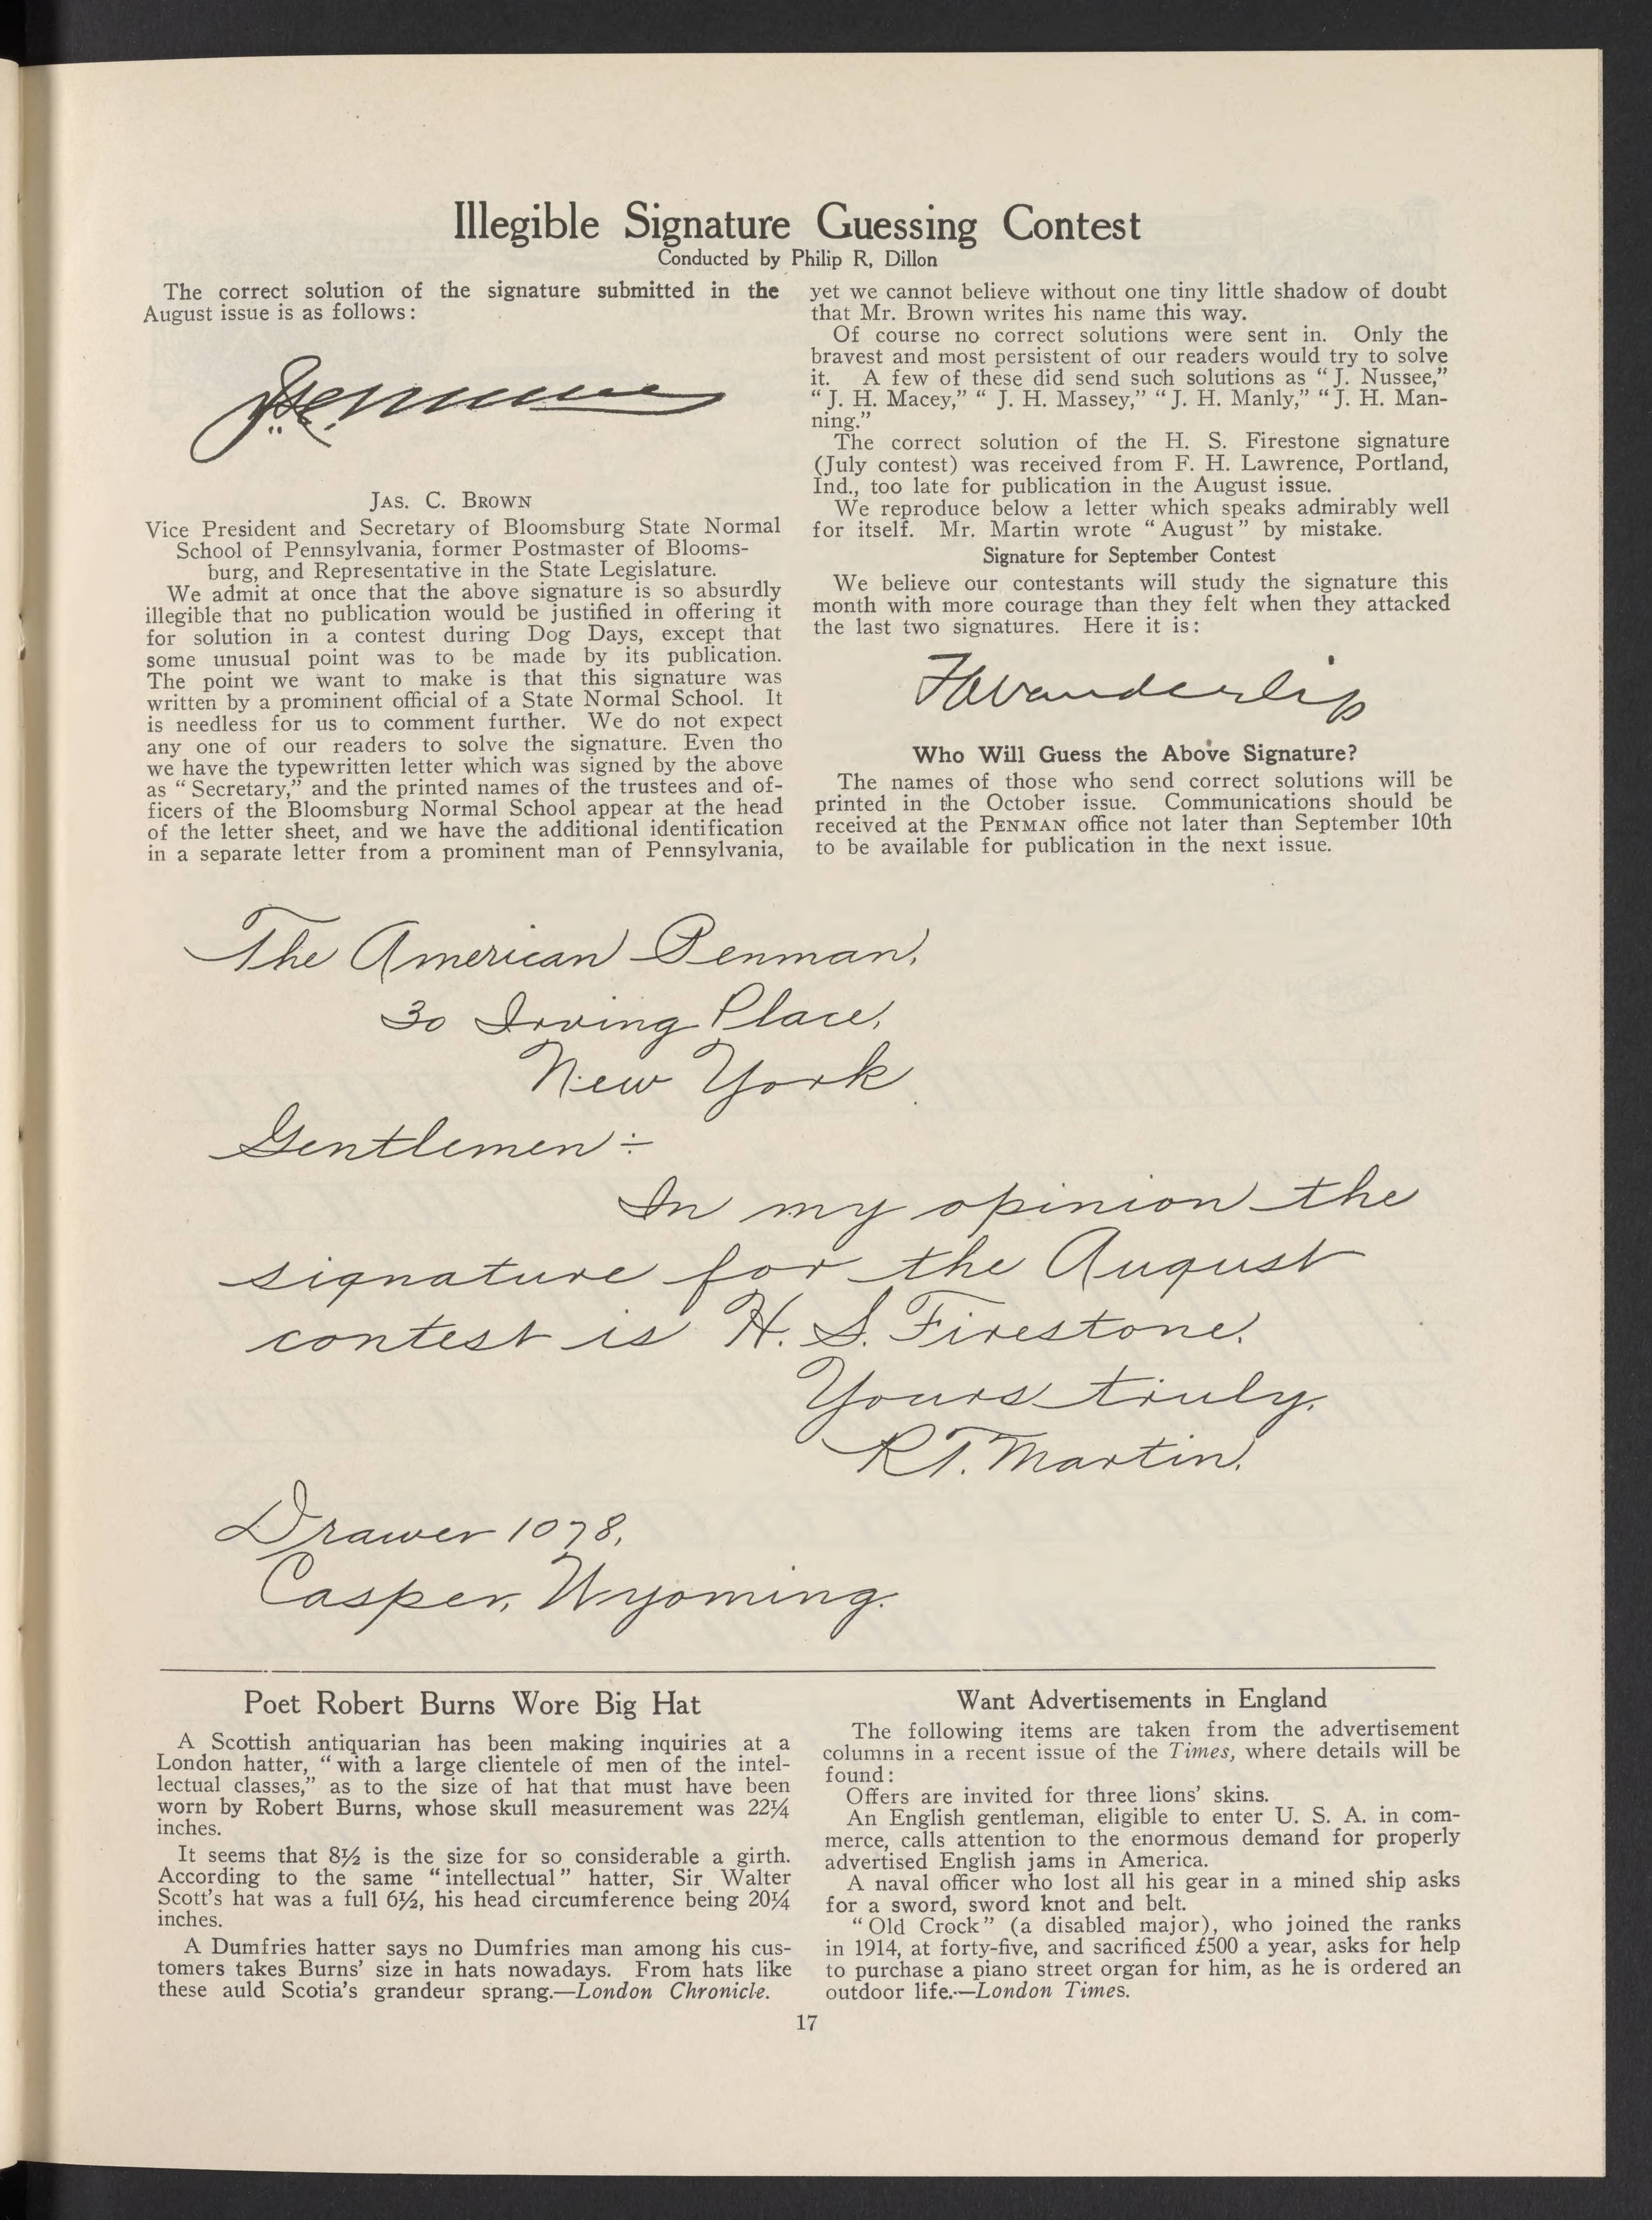 Illegible Signature Guessing Contest
Conducted by Philip R, Dillon
The correct solution of the signature submitted in the
August issue is as follows:
JAS. C. BROWN
Vice President and Secretary of Bloomsburg State Normal
School of Pennsylvania, former Postmaster of Blooms-
burg, and Representative in the State Legislature.
We admit at once that the above signature is so absurdly
illegible that no publication would be justified in offering it
for solution in a contest during Dog Days, except that
some unusual point was to be made by its publication.
The point we want to make is that this signature was
written by a prominent official of a State Normal School. It
is needless for us to comment further. We do not expect
any one of our readers to solve the signature. Even tho
we have the typewritten letter which was signed by the above
as “Secretary,” and the printed names of the trustees and of-
ficers of the Bloomsburg Normal School appear at the head
of the letter sheet, and we have the additional identification
in a separate letter from a prominent man of Pennsylvania,
yet we cannot believe without one tiny little shadow of doubt
that Mr. Brown writes his name this way.
Of course no correct solutions were sent in. Only the
bravest and most persistent of our readers would try to solve
it. A few of these did send such solutions as “J. Nussee,”
“J. H. Macey,” “J. H. Massey,” “J. H. Manly,” “J. H. Man-
ning.”
The correct solution of the H. S. Firestone signature
(July contest) was received from F. H. Lawrence, Portland,
Ind., too late for publication in the August issue.
We reproduce below a letter which speaks admirably well
for itself. Mr. Martin wrote “August” by mistake.
Signature for September Contest
We believe our contestants will study the signature this
month with more courage than they felt when they attacked
the last two signatures. Here it is:
FAVanderlip
Who Will Guess the Above Signature?
The names of those who send correct solutions will be
printed in the October issue. Communications should be
received at the PENMAN office not later than September 10th
to be available for publication in the next issue.
The American Penman,
30 Irving Place,
New York
Gentlemen:-
In my opinion the
signature for the August
contest is H. S. Firestone.
Yours truly,
R.T. Martin.
Drawer 1078,
Casper, Wyoming.
Poet Robert Burns Wore Big Hat
A Scottish antiquarian has been making inquiries at a
London hatter, “with a large clientele of men of the intel-
lectual classes,” as to the size of hat that must have been
worn by Robert Burns, whose skull measurement was 22¼
inches.
It seems that 8½ is the size for so considerable a girth.
According to the same “intellectual” hatter, Sir Walter
Scott’s hat was a full 6½, his head circumference being 20¼
inches.
A Dumfries hatter says no Dumfries man among his cus-
tomers takes Burns’ size in hats nowadays. From hats like
these auld Scotia’s grandeur sprang.—London Chronicle.
Want Advertisements in England
The following items are taken from the advertisement
columns in a recent issue of the Times, where details will be
found:
Offers are invited for three lions’ skins.
An English gentleman, eligible to enter U. S. A. in com-
merce, calls attention to the enormous demand for properly
advertised English jams in America.
A naval officer who lost all his gear in a mined ship asks
for a sword, sword knot and belt.
“Old Crock” (a disabled major), who joined the ranks
in 1914, at forty-five, and sacrificed £500 a year, asks for help
to purchase a piano street organ for him, as he is ordered an
outdoor life.—London Times.
17